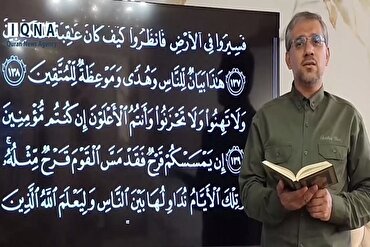 IQNA
Quran News Agency
فَسِيرُوا۟ فِى ٱلْأَرْضِ فَٱنظُرُوا۟ كَيْفَ كَانَ عَٰقِبَةُ
١٣٧ هَٰذَا بَيَانٌ لِّلنَّاسِ وَهُدًى وَمَوْعِظَةٌ لِّلْمُتَّقِينَ ١٣٨
وَلَا تَهِنُوا۟ وَلَا تَحْزَنُوا۟ وَأَنتُمُ ٱلْأَعْلَوْنَ إِن كُنتُم مُّؤْمِنِينَ
١٣٩ إِن يَمْسَسْكُمْ قَرْحٌ فَقَدْ مَسَّ ٱلْقَوْمَ قَرْحٌ مِّثْلُهُۥ
وَتِلْكَ ٱلْأَيَّامُ نُدَاوِلُهَا بَيْنَ ٱلنَّاسِ وَلِيَعْلَمَ ٱللَّهُ ٱلَّذِينَ